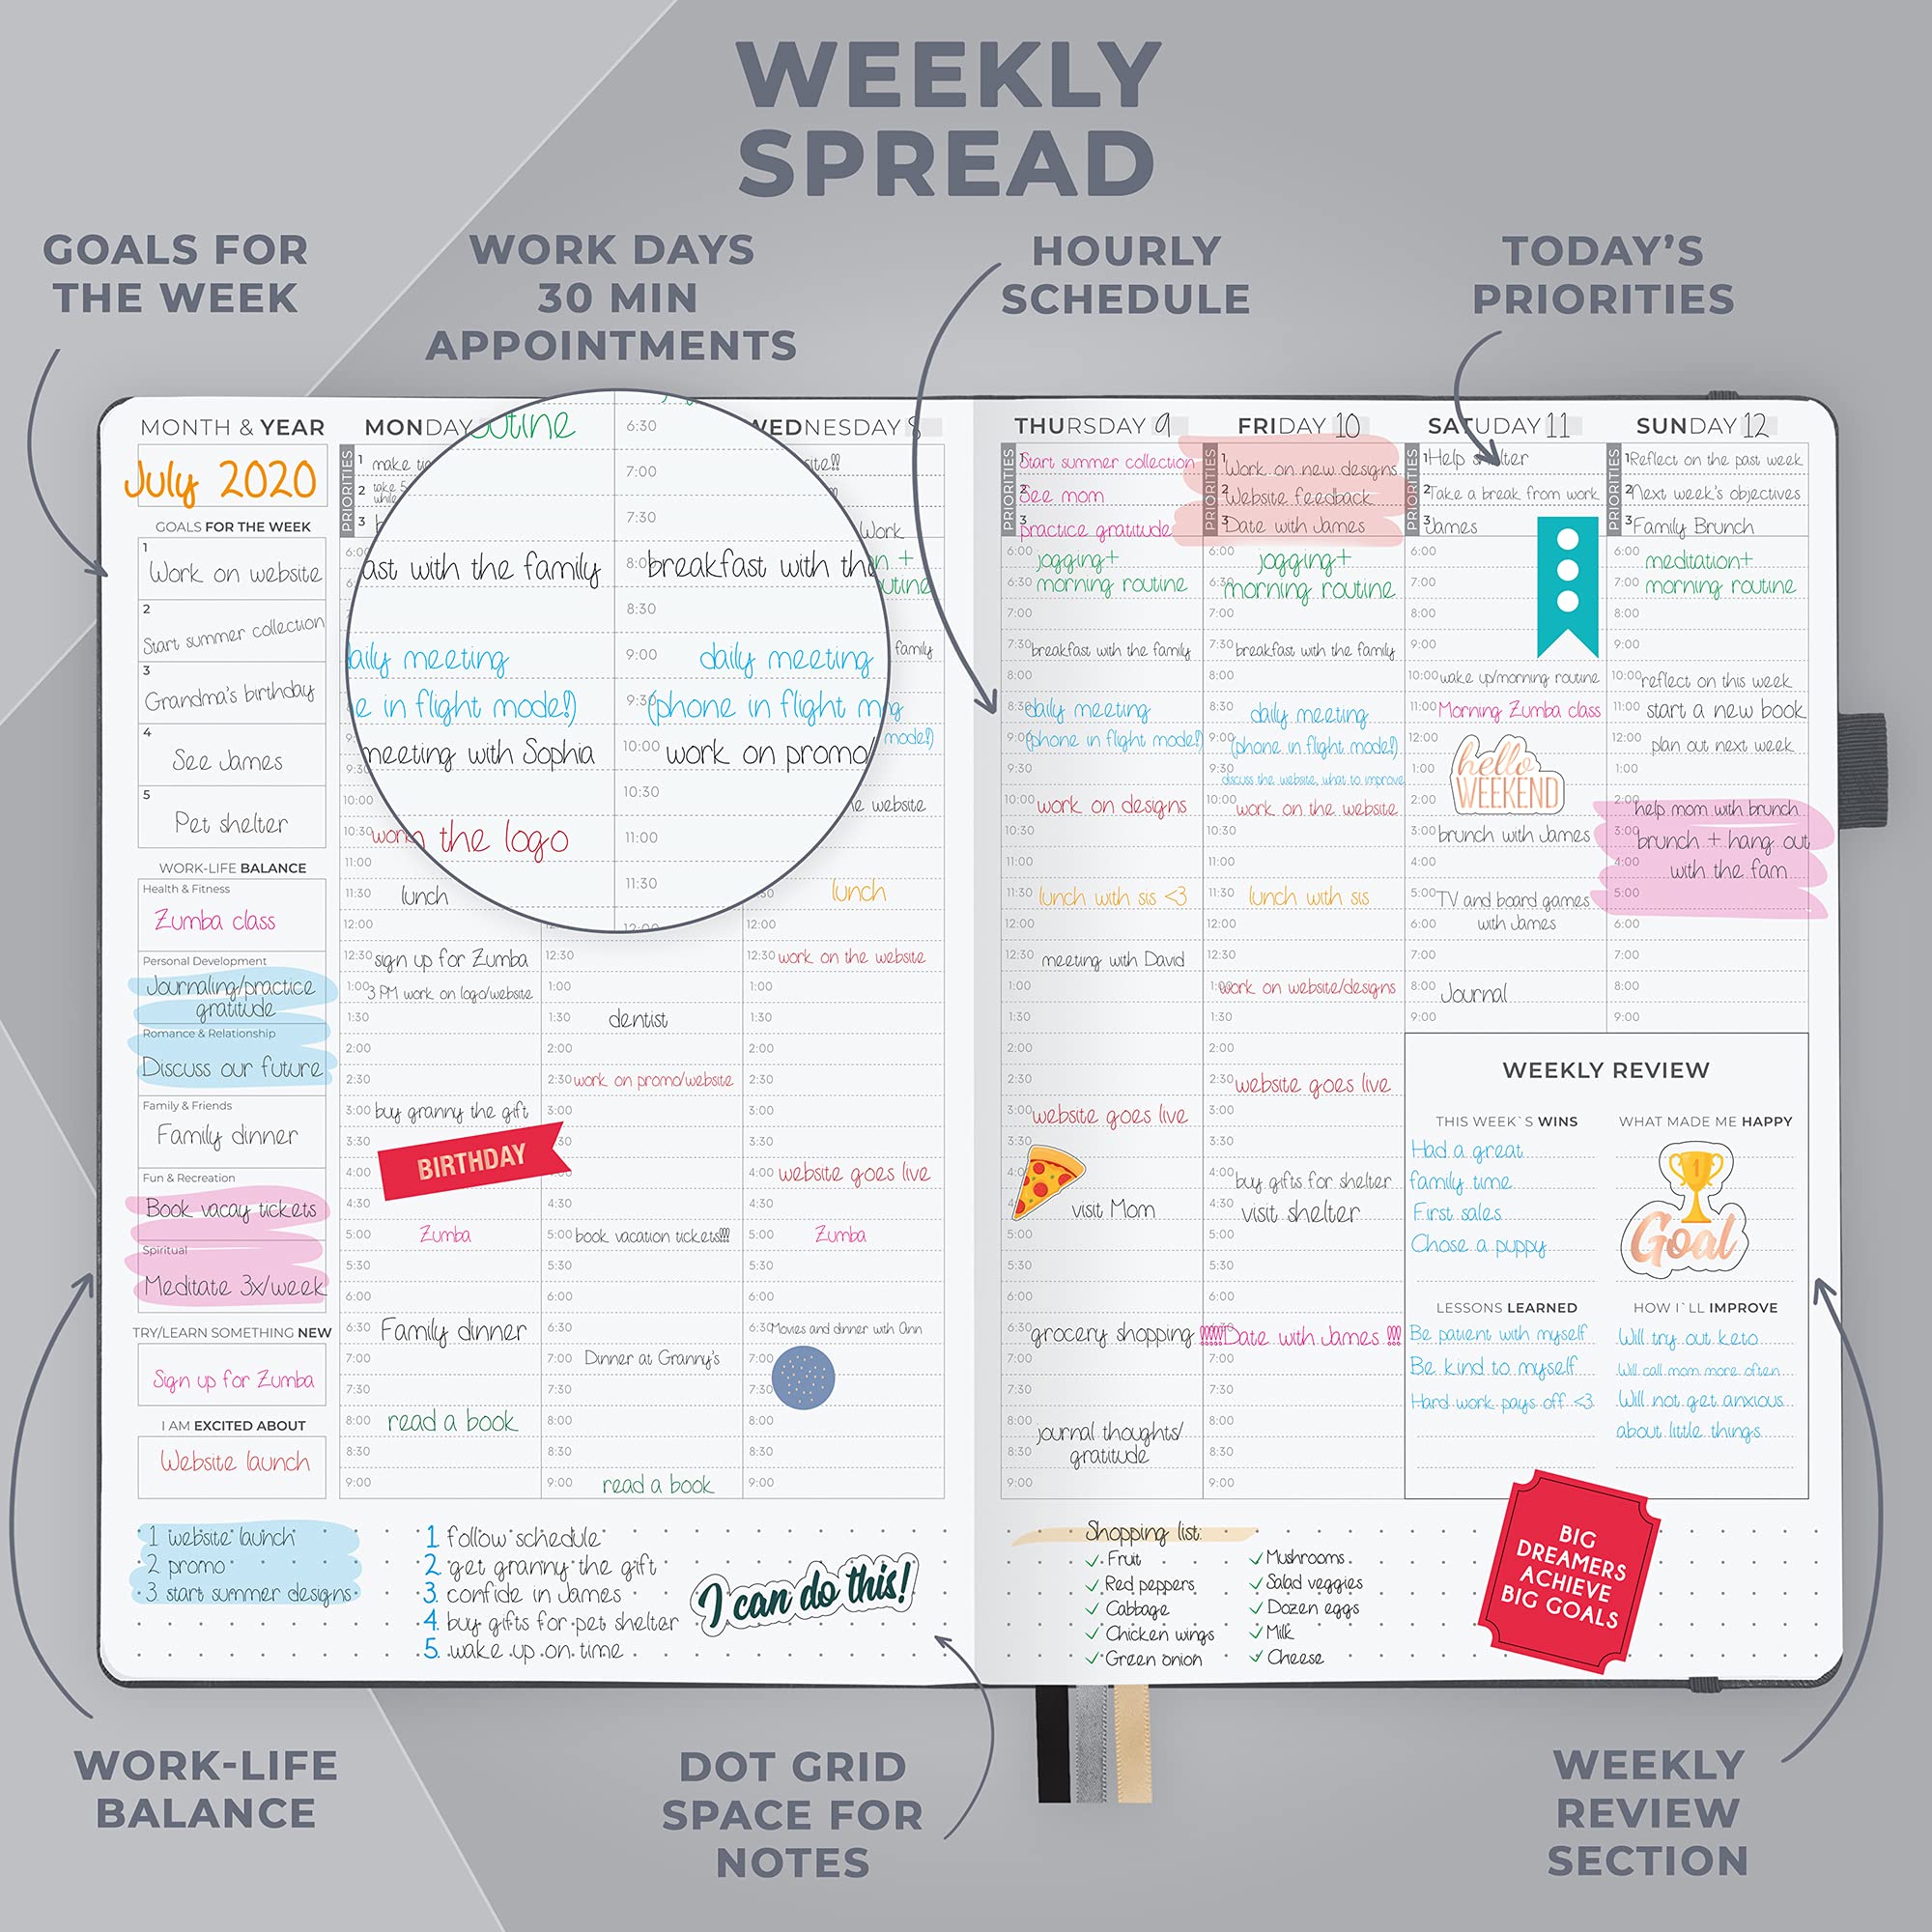 WEEKLY
SPREAD
GOALS FOR
THE WEEK
WORK DAYS
30 MIN
APPOINTMENTS
HOURLY
SCHEDULE
TODAY'S
PRIORITIES
MONTH & YEAR
July 2020
GOALS FOR THE WEEK
1
Work on website
2
Start summer collection
3
Grandma's birthday
4
See James
5
Pet shelter
WORK-LIFE BALANCE
Health & Fitness
Zumba class
Personal Development
Journaling/practice
gratitude
Romance & Relationship
Discuss our future
Family & Friends
Family dinner
Fun & Recreation
Book vacay tickets
Spiritual
Meditate 3x/week
TRY/LEARN SOMETHING NEW
Sign up for Zumba
I AM EXCITED ABOUT
Website launch
MONDAY
PRIORITIES
1 make
2 take 5
while
3
6:00
9:30
10:00
10:30 work
11:00
11:30 lunch
12:00
12:30 sign up for Zumba
1:00 3 PM work on logo/website
1:30
2:00
2:30
3:00 buy granny the gift
3:30
BIRTHDAY
4:00
4:30
5:00 Zumba
5:30
6:00
6:30 Family dinner
7:00
7:30
8:00 read a book
8:30
9:00
utine
ast with the family
aily meeting
e in flight mode!)
meeting with Sophia
the logo
6:30
7:00
7:30
8:00 breakfast with the
8:30
9:00 daily meeting
9:30 (phone in flight m
10:00 work on promo/
10:30
11:00
11:30
12:00
12:30
1:00
1:30 dentist
2:00
2:30 work on promo/website
3:00
3:30
4:00
4:30
5:00 book vacation tickets!!!!
5:30
6:00
6:30
7:00 Dinner at Granny's
7:30
8:00
8:30
9:00 read a book
WEDNESDAY 8
site!!!
Work
n +
utine
family
mode!)
e website
lunch
12:00
12:30 work on the website
1:00
1:30
2:00
2:30
3:00
3:30
4:00 website goes live
4:30
5:00 Zumba
5:30
6:00
6:30 Movies and dinner with Ann
7:00
7:30
8:00
8:30
9:00
1 website launch
2 promo
3 start summer designs
1 follow schedule
2 get granny the gift
3. confide in James
4. buy gifts for pet shelter
5. wake up on time
I can do this!
THURSDAY 9
PRIORITIES
1 Start summer collection
2 See mom
3 practice gratitude
6:00 jogging+
6:30 morning routine
7:00
7:30 breakfast with the family
8:00
8:30 daily meeting
9:00 (phone in flight mode!)
9:30
10:00 work on designs
10:30
11:00
11:30 lunch with sis <3
12:00
12:30 meeting with David
1:00
1:30
2:00
2:30
3:00 website goes live
3:30
4:00
4:30 visit Mom
5:00
5:30
6:00
6:30 grocery shopping
7:00
7:30
8:00 journal thoughts/
8:30 gratitude
9:00
FRIDAY 10
PRIORITIES
1 Work on new designs
2 Website feedback
3 Date with James
6:00 jogging+
6:30 morning routine
7:00
7:30 breakfast with the family
8:00
8:30 daily meeting
9:00 (phone in flight mode!)
9:30 discuss the website, what to improve
10:00 work on the website
10:30
11:00
11:30 lunch with sis
12:00
12:30
1:00 work on website/designs
1:30
2:00
2:30 website goes live
3:00
3:30
4:00 buy gifts for shelter
4:30 visit shelter
5:00
5:30
6:00
6:30 !!!!!Date with James !!!
7:00
7:30
8:00
8:30
9:00
SATUDAY 11
PRIORITIES
1 Help shelter
2 Take a break from work
3 James
6:00
7:00
8:00
9:00
10:00 wake up/morning routine
11:00 Morning Zumba class
12:00
hello
WEEKEND
1:00
2:00
3:00 brunch with James
4:00
5:00 TV and board games
6:00 with James
7:00
8:00 Journal
9:00
SUNDAY 12
PRIORITIES
1 Reflect on the past week
2 Next week's objectives
3 Family Brunch
6:00 meditation+
7:00 morning routine
8:00
9:00
10:00 reflect on this week
11:00 start a new book
12:00 plan out next week
1:00
2:00 help mom with brunch
3:00 brunch + hang out
4:00 with the fam
5:00
6:00
7:00
8:00
9:00
WEEKLY REVIEW
THIS WEEK`S WINS
Had a great
family time
First sales
Chose a puppy
WHAT MADE ME HAPPY
1
Goal
LESSONS LEARNED
Be patient with myself
Be kind to myself
Hard work pays off <3
HOW I`LL IMPROVE
Will try out keto
Will call mom more often
Will not get anxious
about little things
Shopping list:
Fruit
Red peppers
Cabbage
Chicken wings
Green onion
Mushrooms
Salad veggies
Dozen eggs
Milk
Cheese
BIG
DREAMERS
ACHIEVE
BIG GOALS
WORK-LIFE
BALANCE
DOT GRID
SPACE FOR
NOTES
WEEKLY
REVIEW
SECTION